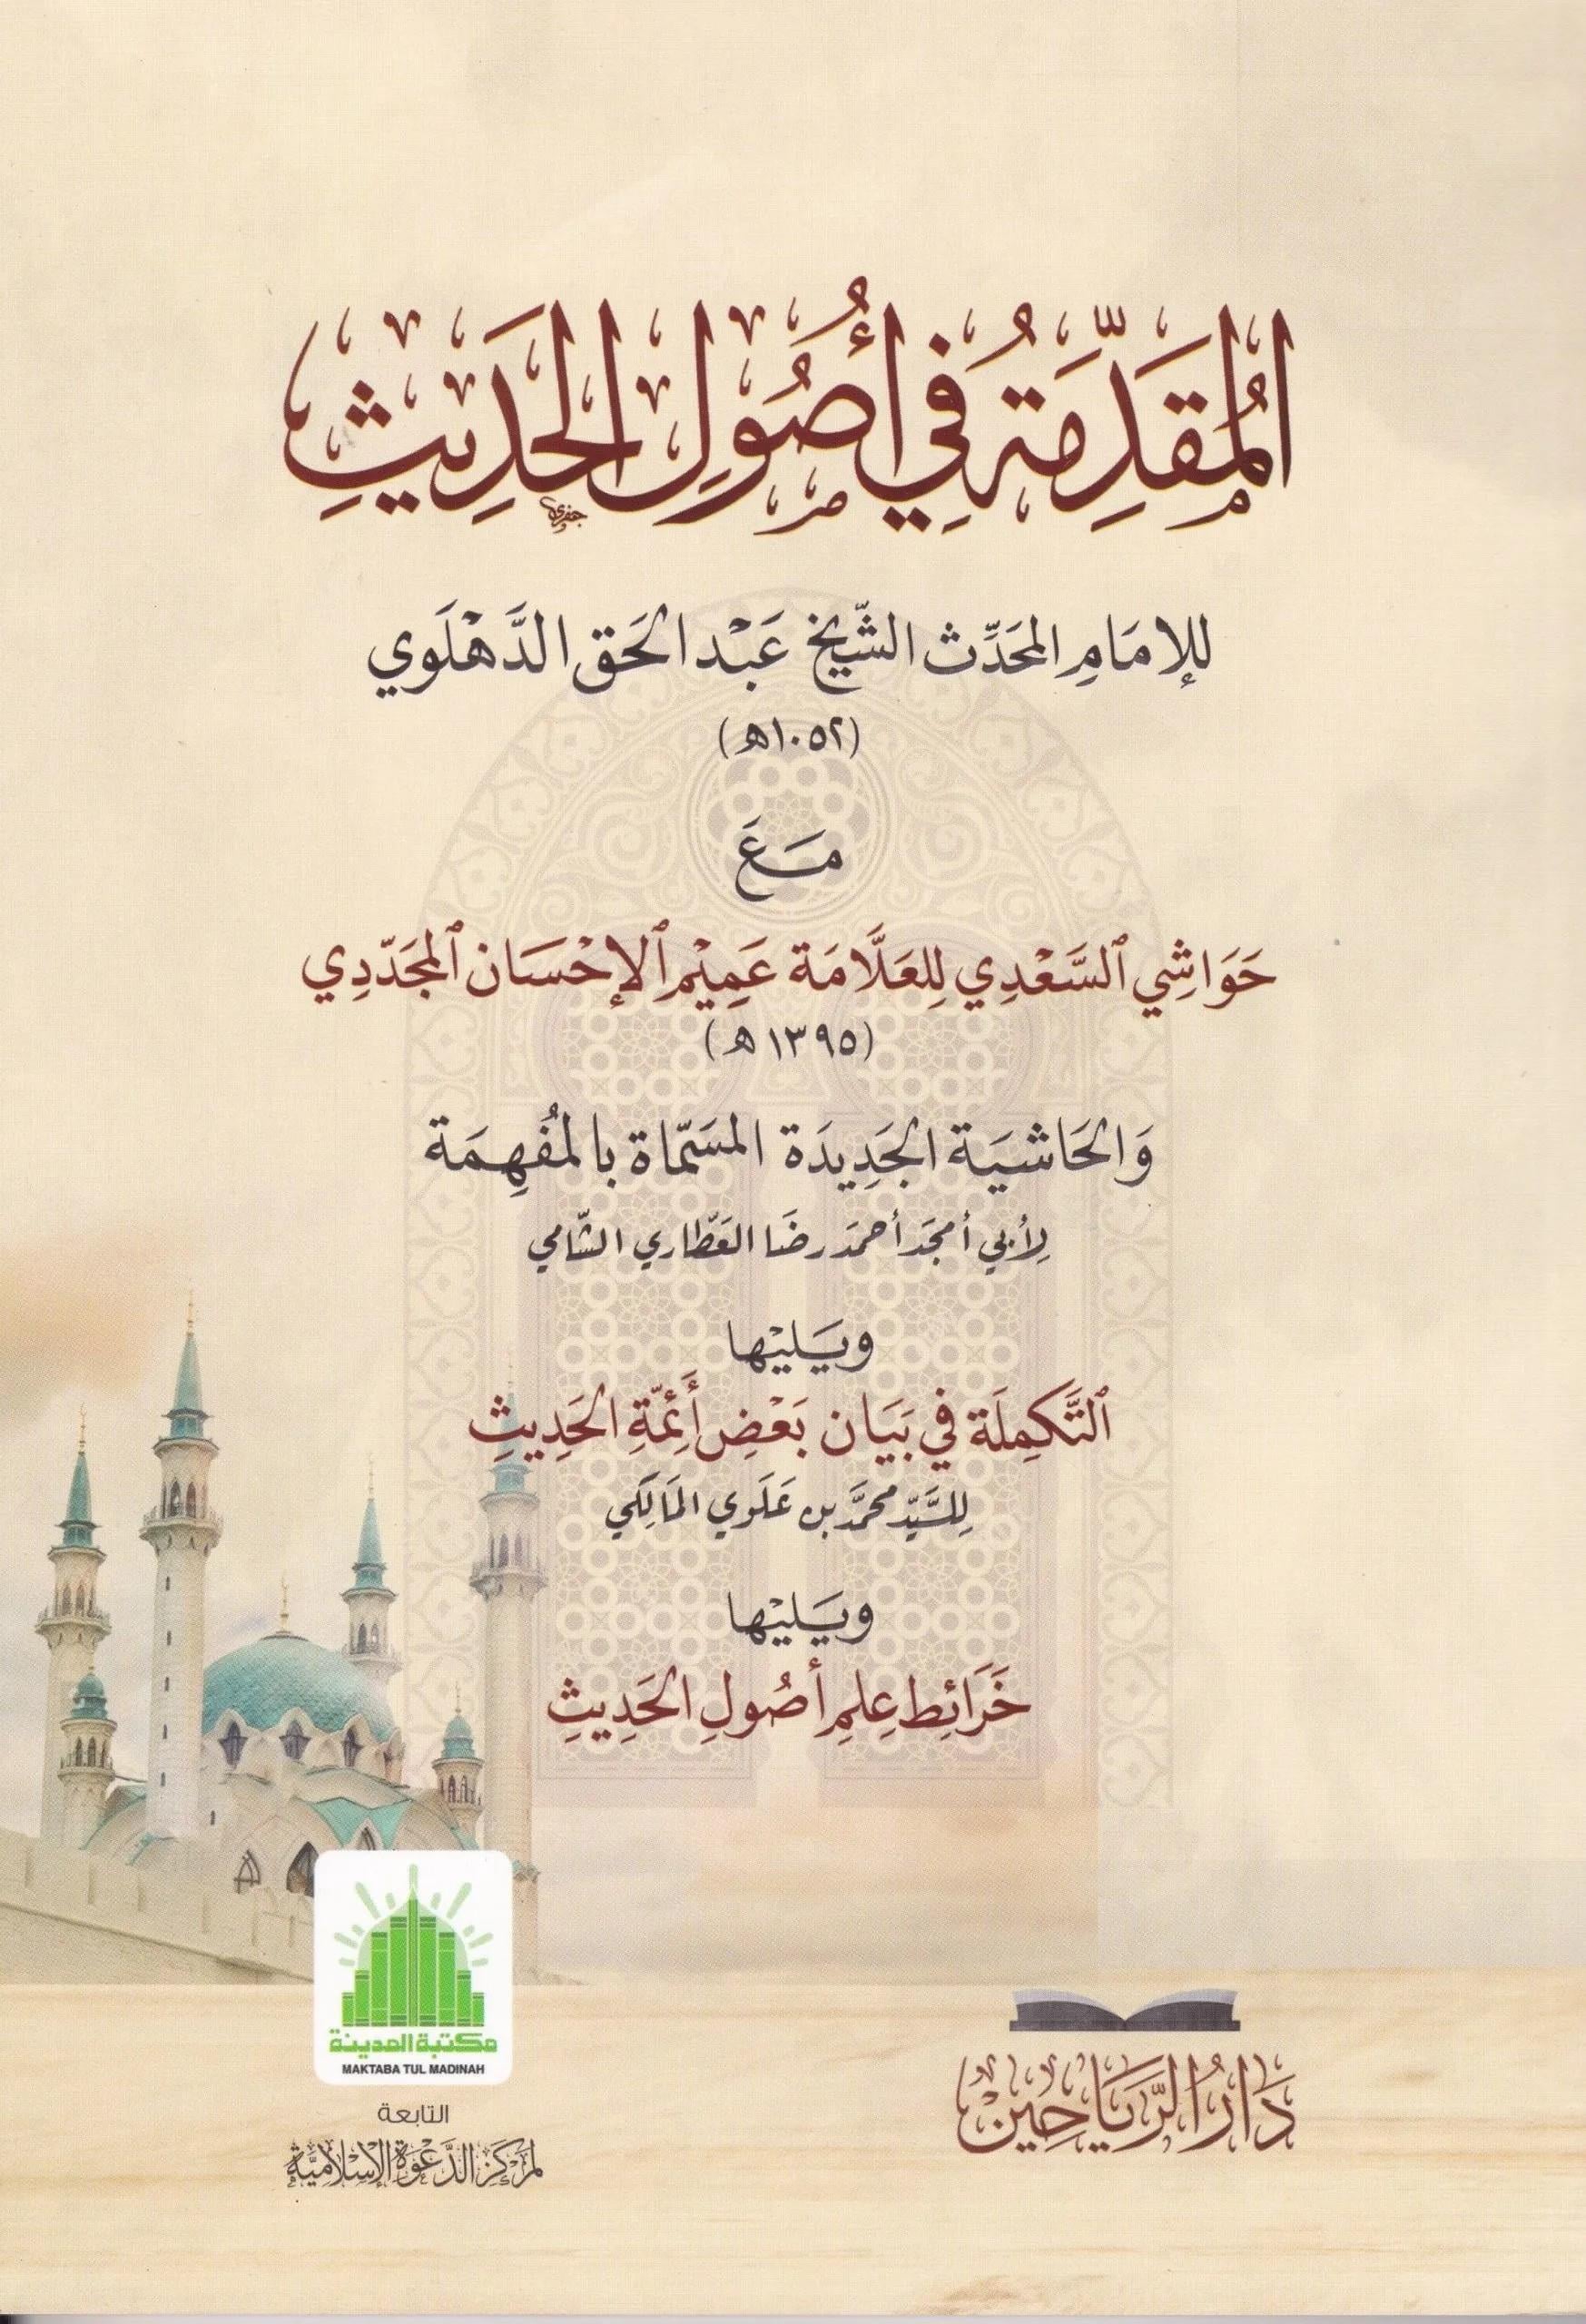 المُقَدِّمَةُ فِي أُصُولِ الحَدِيثِ
للإمَامِ المحَدِّث الشَّيخ عَبْد الحَق الدَّهْلَوي
(١٠٥٢هـ)
مَعَ
حَوَاشِي السَّعْدِي لِلعَلَّامَة عَمِيْم الإحْسَان المجَدّدِي
(١٣٩٥هـ)
وَالحَاشيَة الجَدِيدَة المسَمّاة بالمُفْهِمَة
لِأبي أمجَد أحمَد رضَا العَطّاري الشّامي
ويَليْها
التَّكمِلَة في بَيَان بَعْضِ أَئِمّةِ الحَدِيثِ
لِلسَّيّد محمَّد بن عَلَوي المَالِكي
ويَليْها
خَرَائِط عِلمِ أصُولِ الحَدِيثِ
دَارُ الرَّيَاحِيْن
مكتبة المدينة
MAKTABA TUL MADINAH
التابعة
لمَركَزِ الدَّعْوَةِ الإسْلَاميَّة